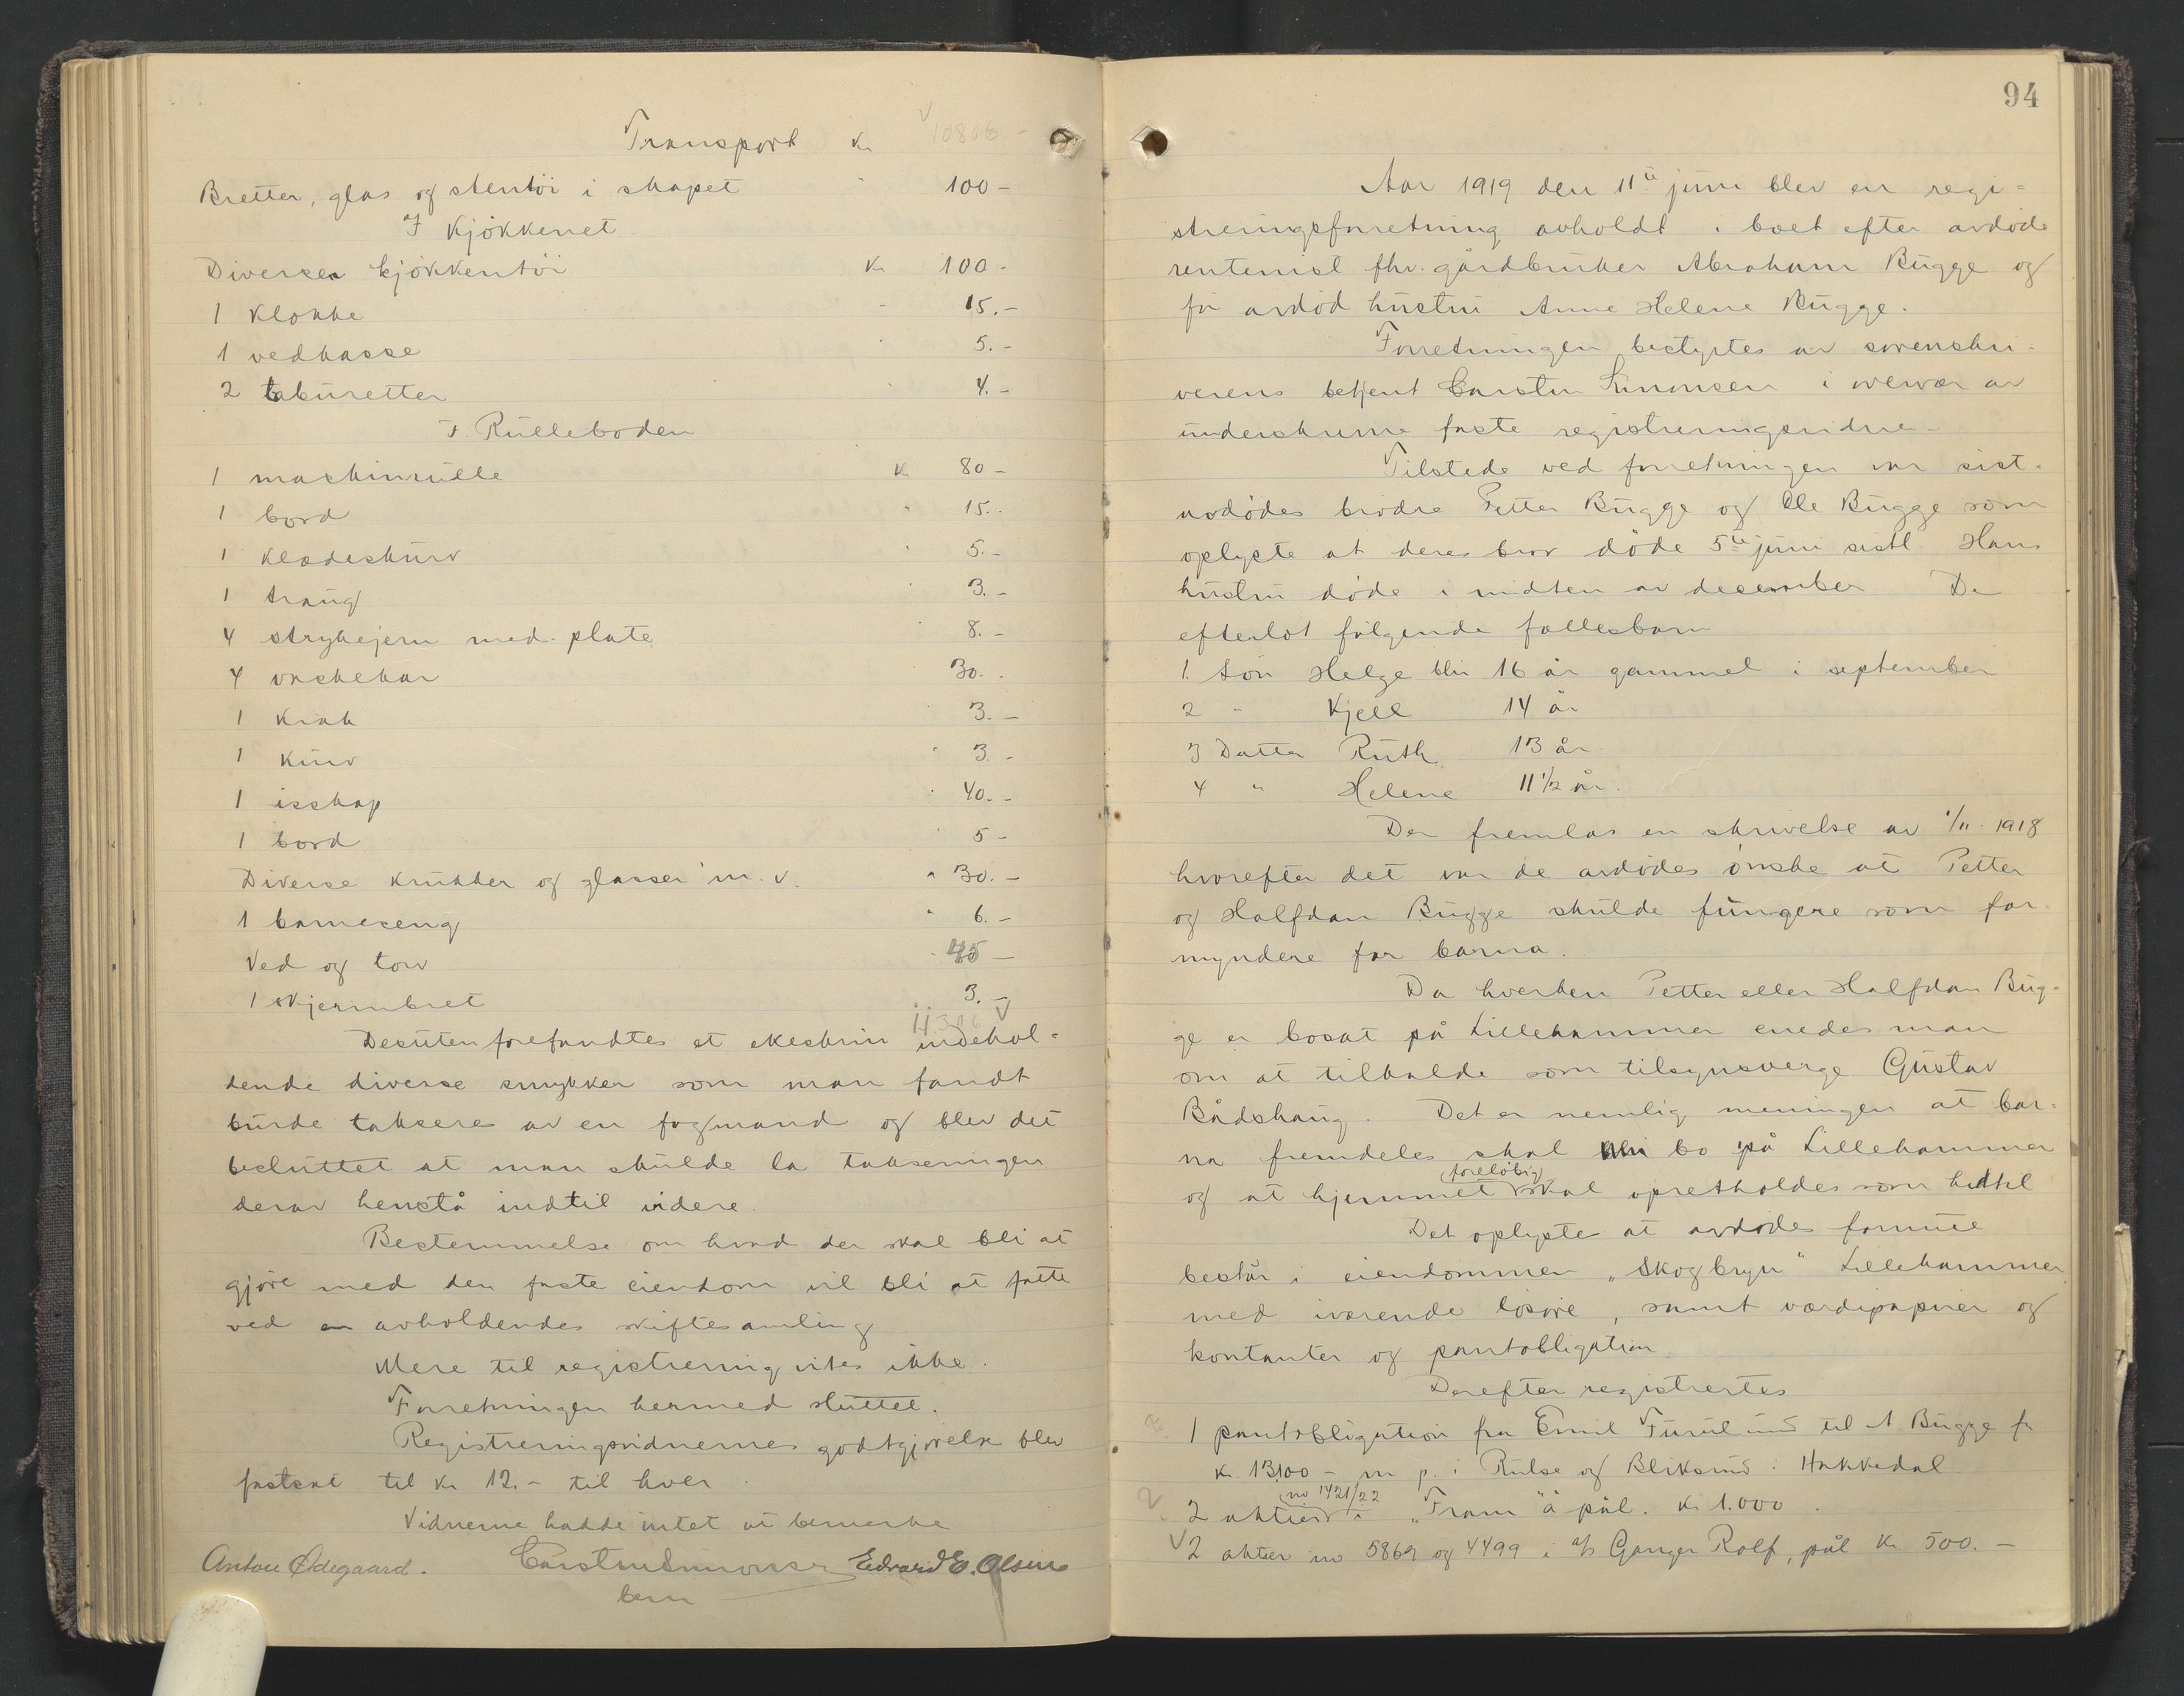 Transport Kr 10806.-
Bretter, glas og stentöi i skapet " 100 -
I Kjökkenet
Diverse kjökkentöi Kr 100 -
1 Klokke - 15.-
1 vedkasse 5.-
2 taburetter 4.-
I. Rulleboden
1 maskinrulle Kr 80 -
1 bord " 15.-
1 klædeskurv 5.-
1 traug 3.-
4 strykejern med plate 8.-
4 vaskekar 30.-
1 krak 3.-
1 kurv " 3.-
1 isskap 40.-
1 bord 5 -
Diverse krukker og glasser m. v. " 30.-
1 barneseng " 6.-
Ved og torv 45 -
1 skjermbret 3.-
11.306
Desuten forefandtes et ekeskrin indehol=
dende diverse smykker som man fandt
burde takseres av en fagmand og blev det
besluttet at man skulde la takseringen
derav henstå indtil videre.
Bestemmelse om hvad der skal bli at
gjöre med den faste eiendom vil bli at fatte
ved en avholdendes skiftesamling
Mere til registrering vites ikke.
Forretningen hermed sluttet.
Registreringsvidnernes godtgjörelse blev
fastsat til Kr 12.- til hver
Vidnerne hadde intet at bemerke
Anton Ødegaard. Carsten Simonsen Edvard E. Olsen
bem
94
Aar 1919 den 11te juni blev en regi=
streringsforretning avholdt i boet efter avdöde
rentenist fhv. gårdbruker Abraham Bugge og
før avdöd hustru Anne Helene Bugge.
Forretningen bestyrtes av sorenskri=
verens betjent Carsten Simonsen i overvær av
underskrevne faste registreringsvidne.
Tilstede ved forretningen var sist=
avdödes brödre Petter Bugge og Ole Bugge som
oplyste at deres bror döde 5te juni sistl. Hans
hustru döde i midten av december De
efterlot fölgende fællesbarn
1. Sön Helge blir 16 år gammel i september
2 " Kjell 14 år
3 Datter Ruth 13 år.
4 " Helene 11 1/2 år.
Der fremlas en skrivelse av 1/11 1918
hvorefter det var de avdödes önske at Petter
og Halfdan Bugge skulde fungere som for
myndere for barna.
Da hverken Petter eller Halfdan Bug=
ge er bosat på Lillehammer enedes man
om at tilkalde som tilsynsverge Gustav
Bådshaug. Det er nemlig meningen at bar=
na fremdeles skal bo på Lillehammer
og at hjemmet (forelöbig) skal opretholdes som hittil
Det oplystes at avdödes formue
består i eiendommen "Skogbryn" Lillehammer
med iværende lösöre, samt værdipapirer og
kontanter og pantobligation.
Derefter registrertes
1 pantobligation fra Emil Furulund til A Bugge for
Kr. 13100 - m p. i Rulse og Bliksrud i Hakkedal
2 aktier (no 1421/22) i "Fram" à pål. Kr 1.000.
2 aktier no 5869 og 4499 i a/s Ganger Rolf, pål Kr 500.-